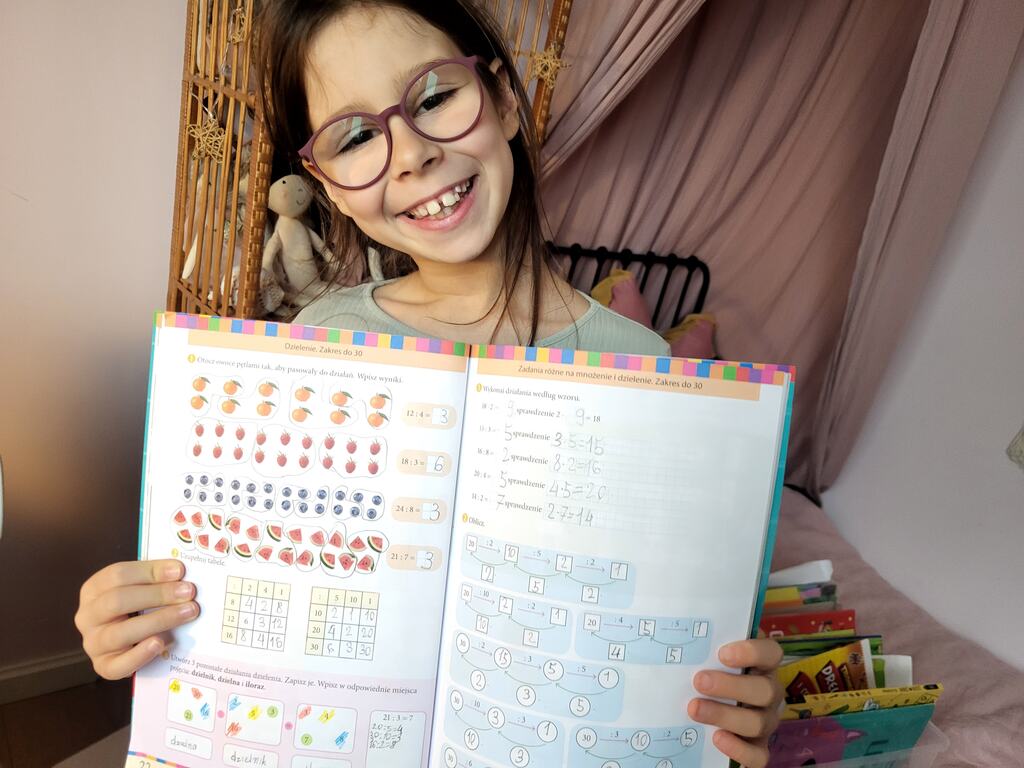 Dzielenie. Zakres do 30
1 Otocz owoce pętlami tak, aby pasowały do działań. Wpisz wyniki.
12 : 4 = 3
18 : 3 = 6
24 : 8 = 3
21 : 7 = 3
2 Uzupełnij tabele.
: 2 4 1
8 4 2 8
12 6 3 12
16 8 4 16
: 5 10 1
10 2 1 10
20 4 2 20
30 6 3 30
Utwórz 3 pozostałe działania dzielenia. Zapisz je. Wpisz w odpowiednie miejsca
pojęcia: dzielnik, dzielna i iloraz.
20 2 4
5 3
21 7 8
21 : 3 = 7
20:5=4
30:10=3
16:2=8
dzielna
dzielnik
22
Zadania różne na mnożenie i dzielenie. Zakres do 30
1 Wykonaj działania według wzoru.
18 : 2 = 9 sprawdzenie 2 · 9 = 18
15 : 3 = 5 sprawdzenie 3·5=15
16 : 8 = 2 sprawdzenie 8·2=16
20 : 4 = 5 sprawdzenie 4·5=20
14 : 2 = 7 sprawdzenie 2·7=14
2 Oblicz.
20 : 2 10 : 5 2 : 2 1
2 5 2
20 : 10 2 : 2 1
10 2
20 : 4 5 : 5 1
4 5
30 : 2 15 : 3 5 : 5 1
2 3 5
30 : 10 3 : 3 1
10 3
30 : 3 10 : 2 5
: 6